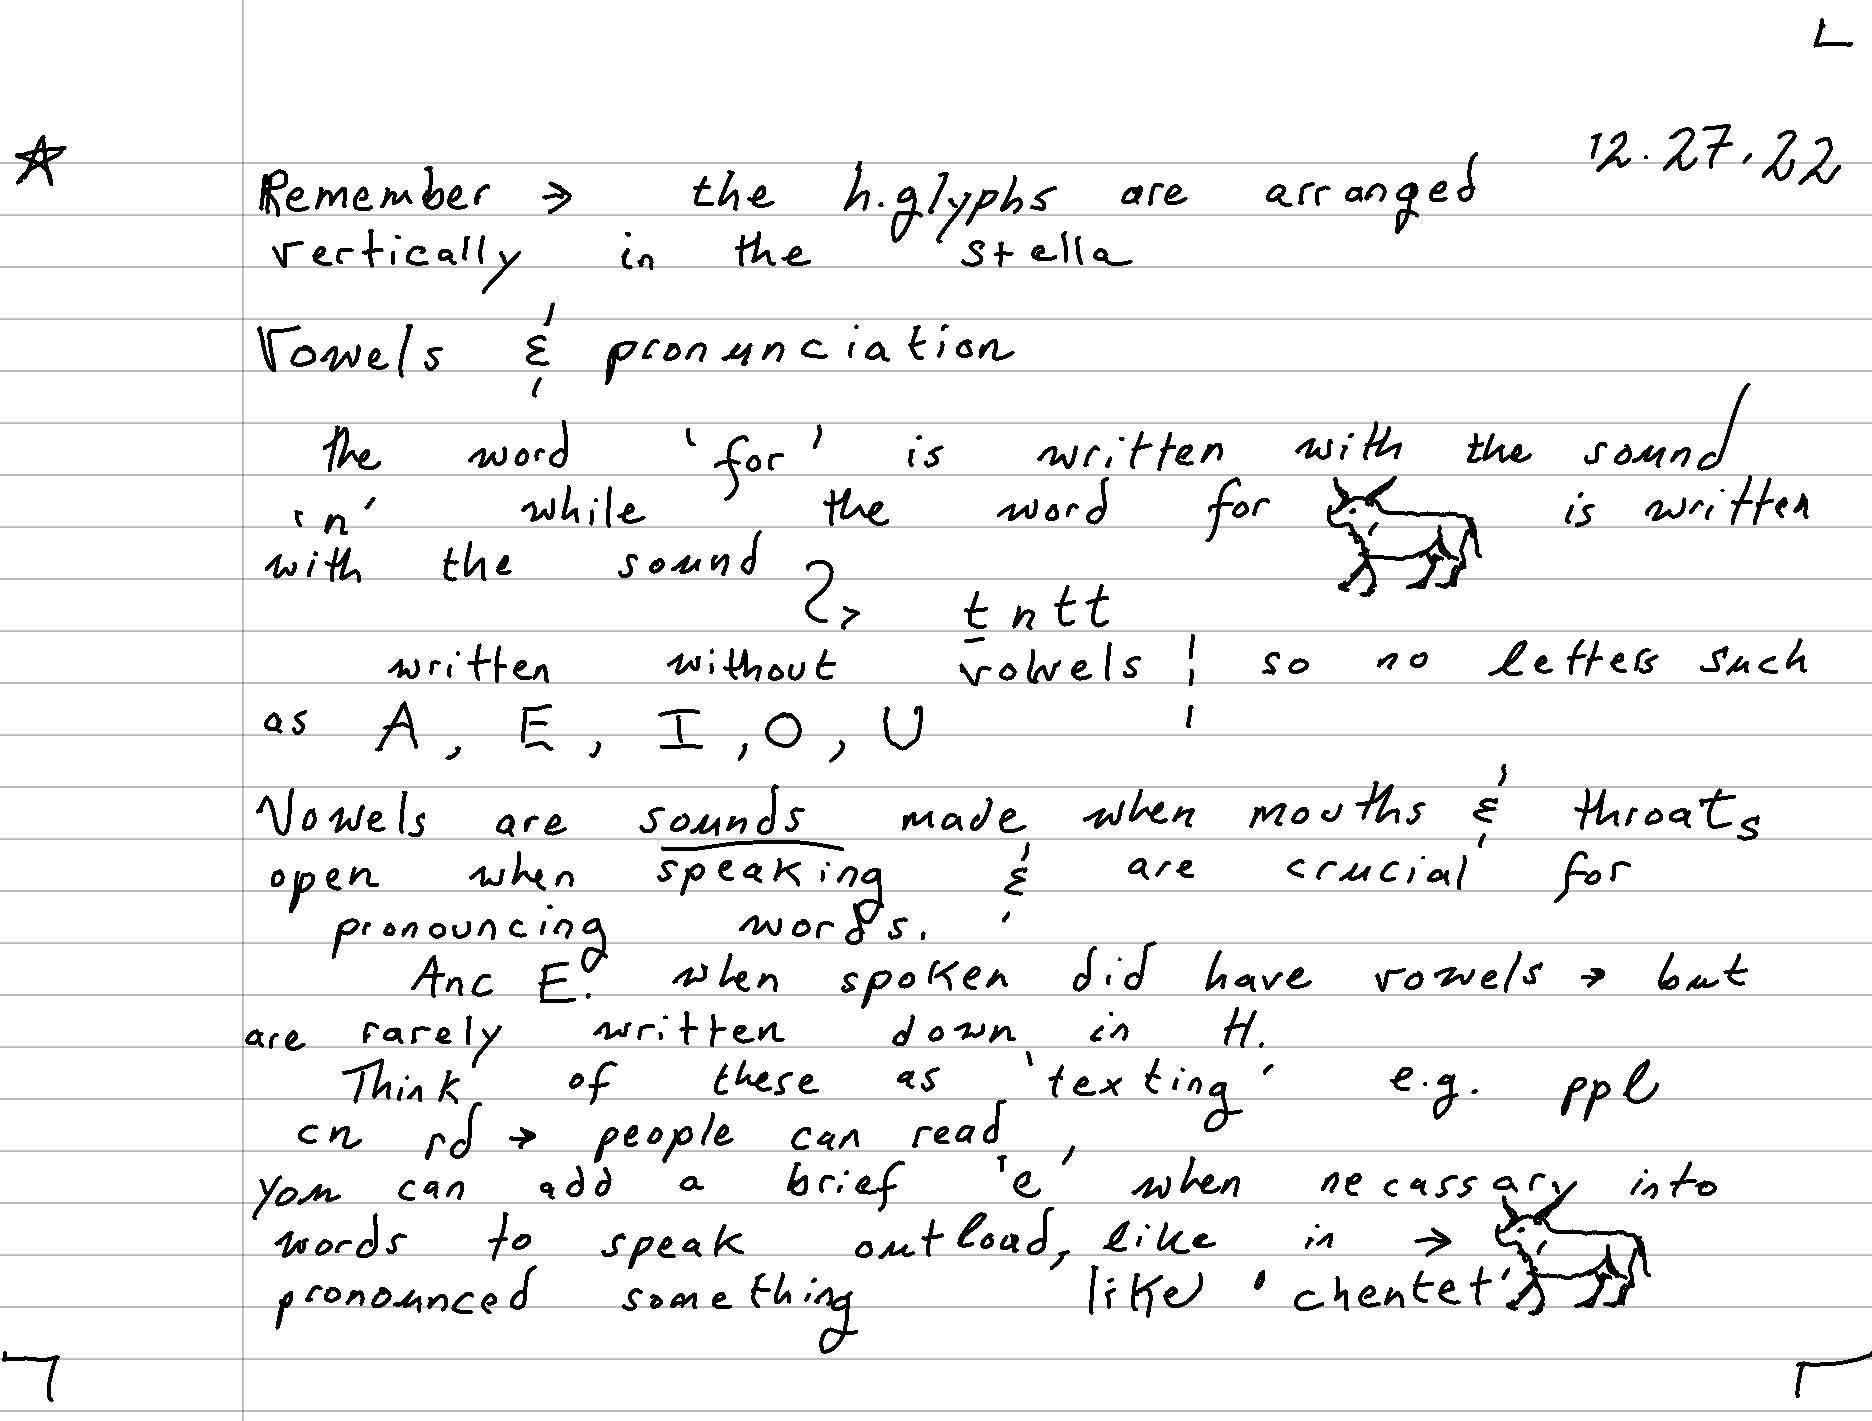 12.27.22
Remember → the h.glyphs are arranged
vertically in the stella
Vowels & pronunciation
the word 'for' is written with the sound
'n' while the word for is written
with the sound
→ ṯntt
written without vowels ¦ so no letters such
as A, E, I, O, U
Vowels are sounds made when mouths & throats
open when speaking & are crucial for
pronouncing words.
Anc E. when spoken did have vowels → but
are rarely written down in H.
Think of these as 'texting' e.g. ppl
cn rd → people can read
you can add a brief 'e' when necassary into
words to speak outload, like in →
pronounced something like 'chentet'